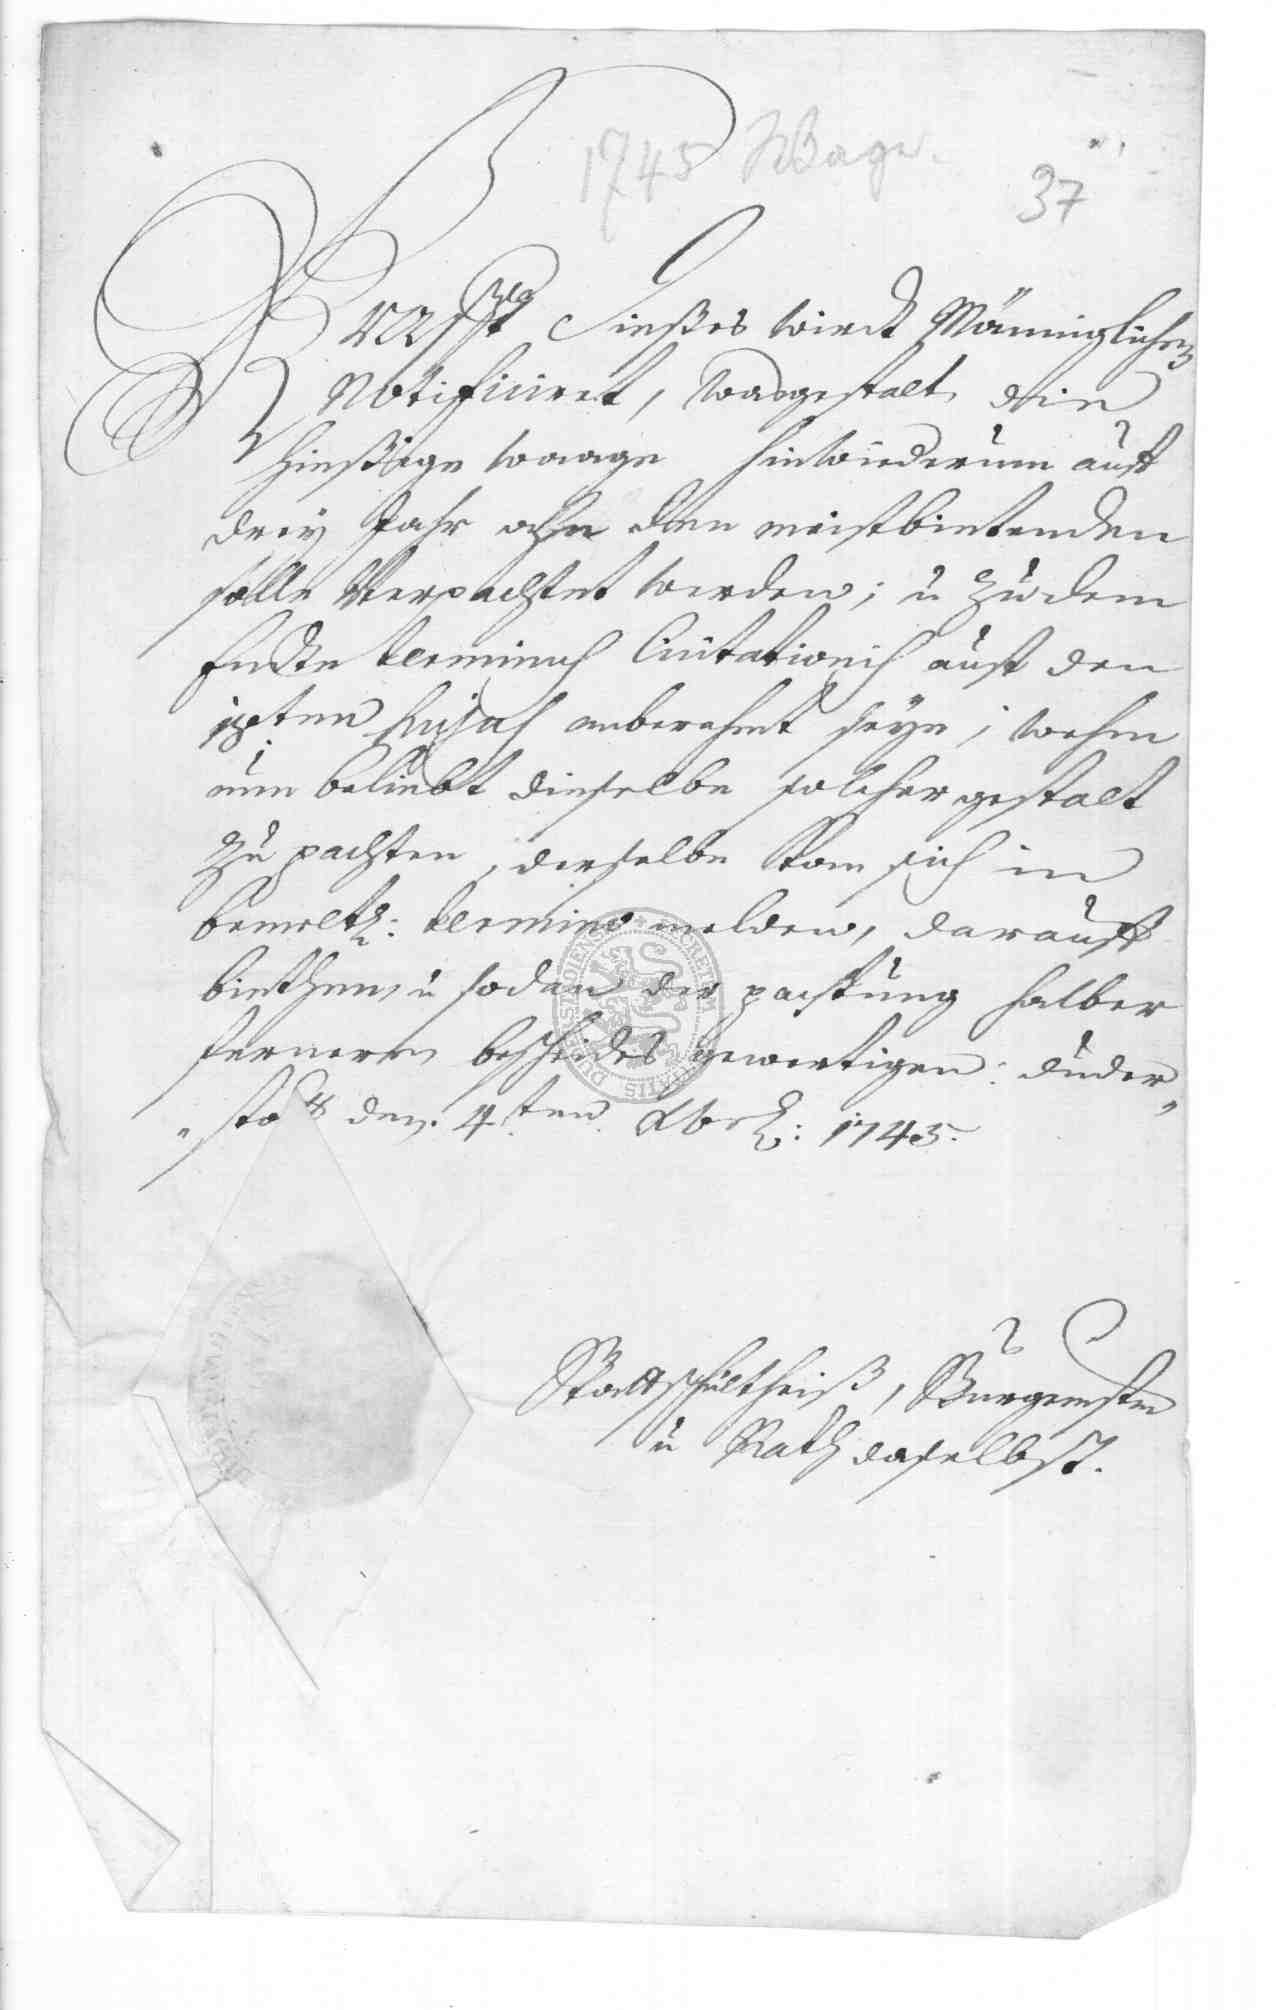 1745 Wage
37
Krafft dießes wirdt Männiglichen
Notificiret, wasgestalt, die
hießige waage hinwiederum auff
drey Jahr ahn den meistbietenden
solle Verpachtet werden; u zu dem
Endte terminus Licitationis auff den
hujus anberahmt seye; wehm
nun beliebt dieselbe solchergestalt
zu pachten, derselbe kan sich in
bemelt: termino melden, darauff
biethen, u sodan der pachtung halber
ferneren bescheides gewertigen: duder„
„stadt den 4ten Xbr: 1745.
Stattschultheiß, Burgermstere
u Rath daselbst.